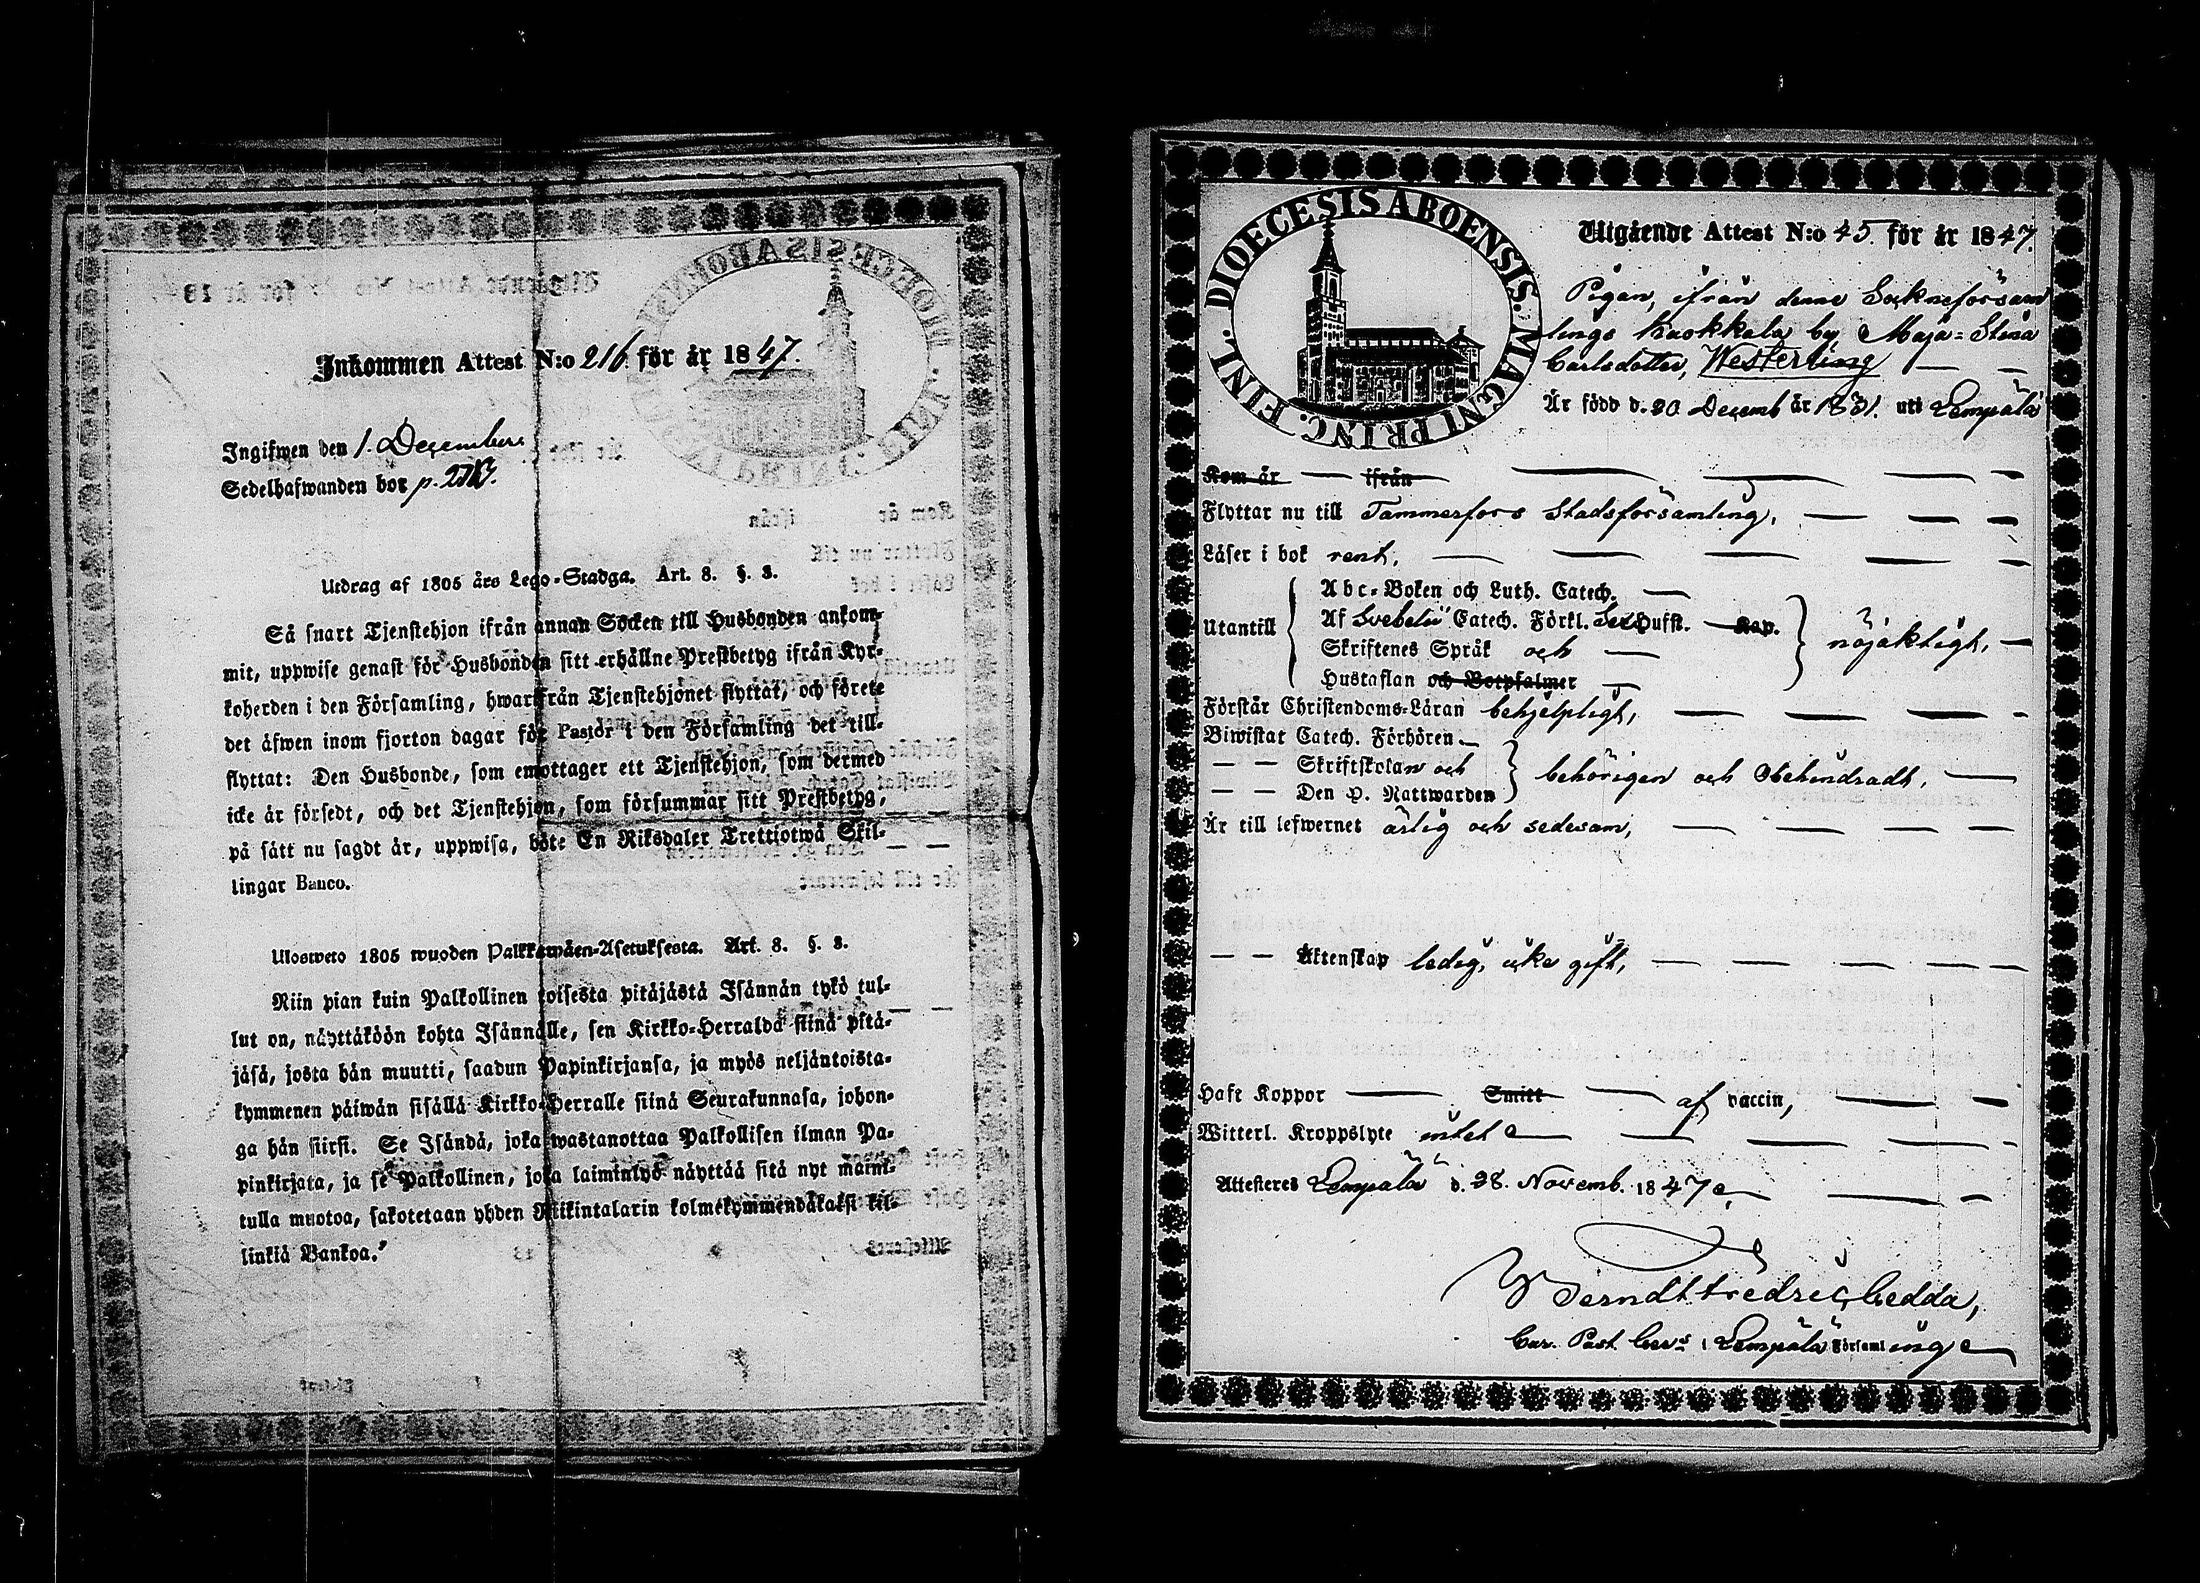 Inkommen Attest N:o 216 för år 1847.
Ingifwen den 1. December
Sedelhafwanden bor p.
Utdrag af 1805 års Lego-Stadga. Art. 8. §. 3.
Så snart Tjenstehjon ifrån annan Socken till Husbonden ankom-
mit, uppwise genast för Husbonden sitt erhållne Prestbetyg ifrån Kyr-
koherden i den Församling, hwarifrån Tjenstehjonet flyttat, och förete
det äfwen inom fjorton dagar för Pastor i den Församling det till-
flyttat: Den Husbonde, som emottager ett Tjenstehjon, som dermed
icke är försedt, och det Tjenstehjon, som försummar sitt Prestbetyg,
på sätt nu sagdt är, uppwisa, böte En Riksdaler Trettiotwå Skil-
lingar Banco.
Ulosweto 1805 wuoden Palkkawäen-Asetuksesta. Art. 8. §. 3.
Niin pian kuin Palkollinen toisesta pitäjästä Isännän tykö tul-
lut on, näyttäköön kohta Isännälle, sen Kirkko-Herralda siinä pitä-
jäsä, josta hän muutti, saadun Papinkirjansa, ja myös neljäntoista-
kymmenen päiwän sisällä Kirkko-Herralle siinä Seurakunnasa, johon-
ga hän siirsi. Se Isändä, joka wastanottaa Palkollisen ilman Pa-
pinkirjata, ja se Palkollinen, joka laiminlyö näyttää sitä nyt maini-
tulla muotoa, sakotetaan yhden Riikintalarin kolmekymmendäkaksi kil-
linkiä Bankoa.
DIOECESIS ABOENSIS. MAGNI PRINC. FINL.
Utgående Attest N:o 45. för år 1847.
Pigan, ifrån denne Sockneförsam
lings Kuokkala by Maja-Stina
Carlsdotter, Westerling
Är född d. 20 Decemb år 1831. uti Lempälä
Kom år ifrån
Flyttar nu till Tammerfors Stadsförsamling,
Läser i bok rent,
Abc-Boken och Luth. Catech.
Utantill
Af Svebelii Catech. Förkl. Hufst. Kap.
nöjaktigt,
Skriftenes Språk och
Hustaflan och Botpsalmer
Förstår Christendoms-Läran behjelpligt,
Biwistat Catech. Förhören
Skriftskolan och
behörigen och Obehindradt,
Den H. Nattwarden
Är till lefwernet ärlig och sedesam,
Äktenskap ledig, icke gift,
Haft Koppor Smitt af vaccin,
Witterl. Kroppslyte intet
Attesteres Lempälä d. 28. Novemb. 1847
Berndt Fredric Gedda,
Cur. Past. i Lempälä Församling